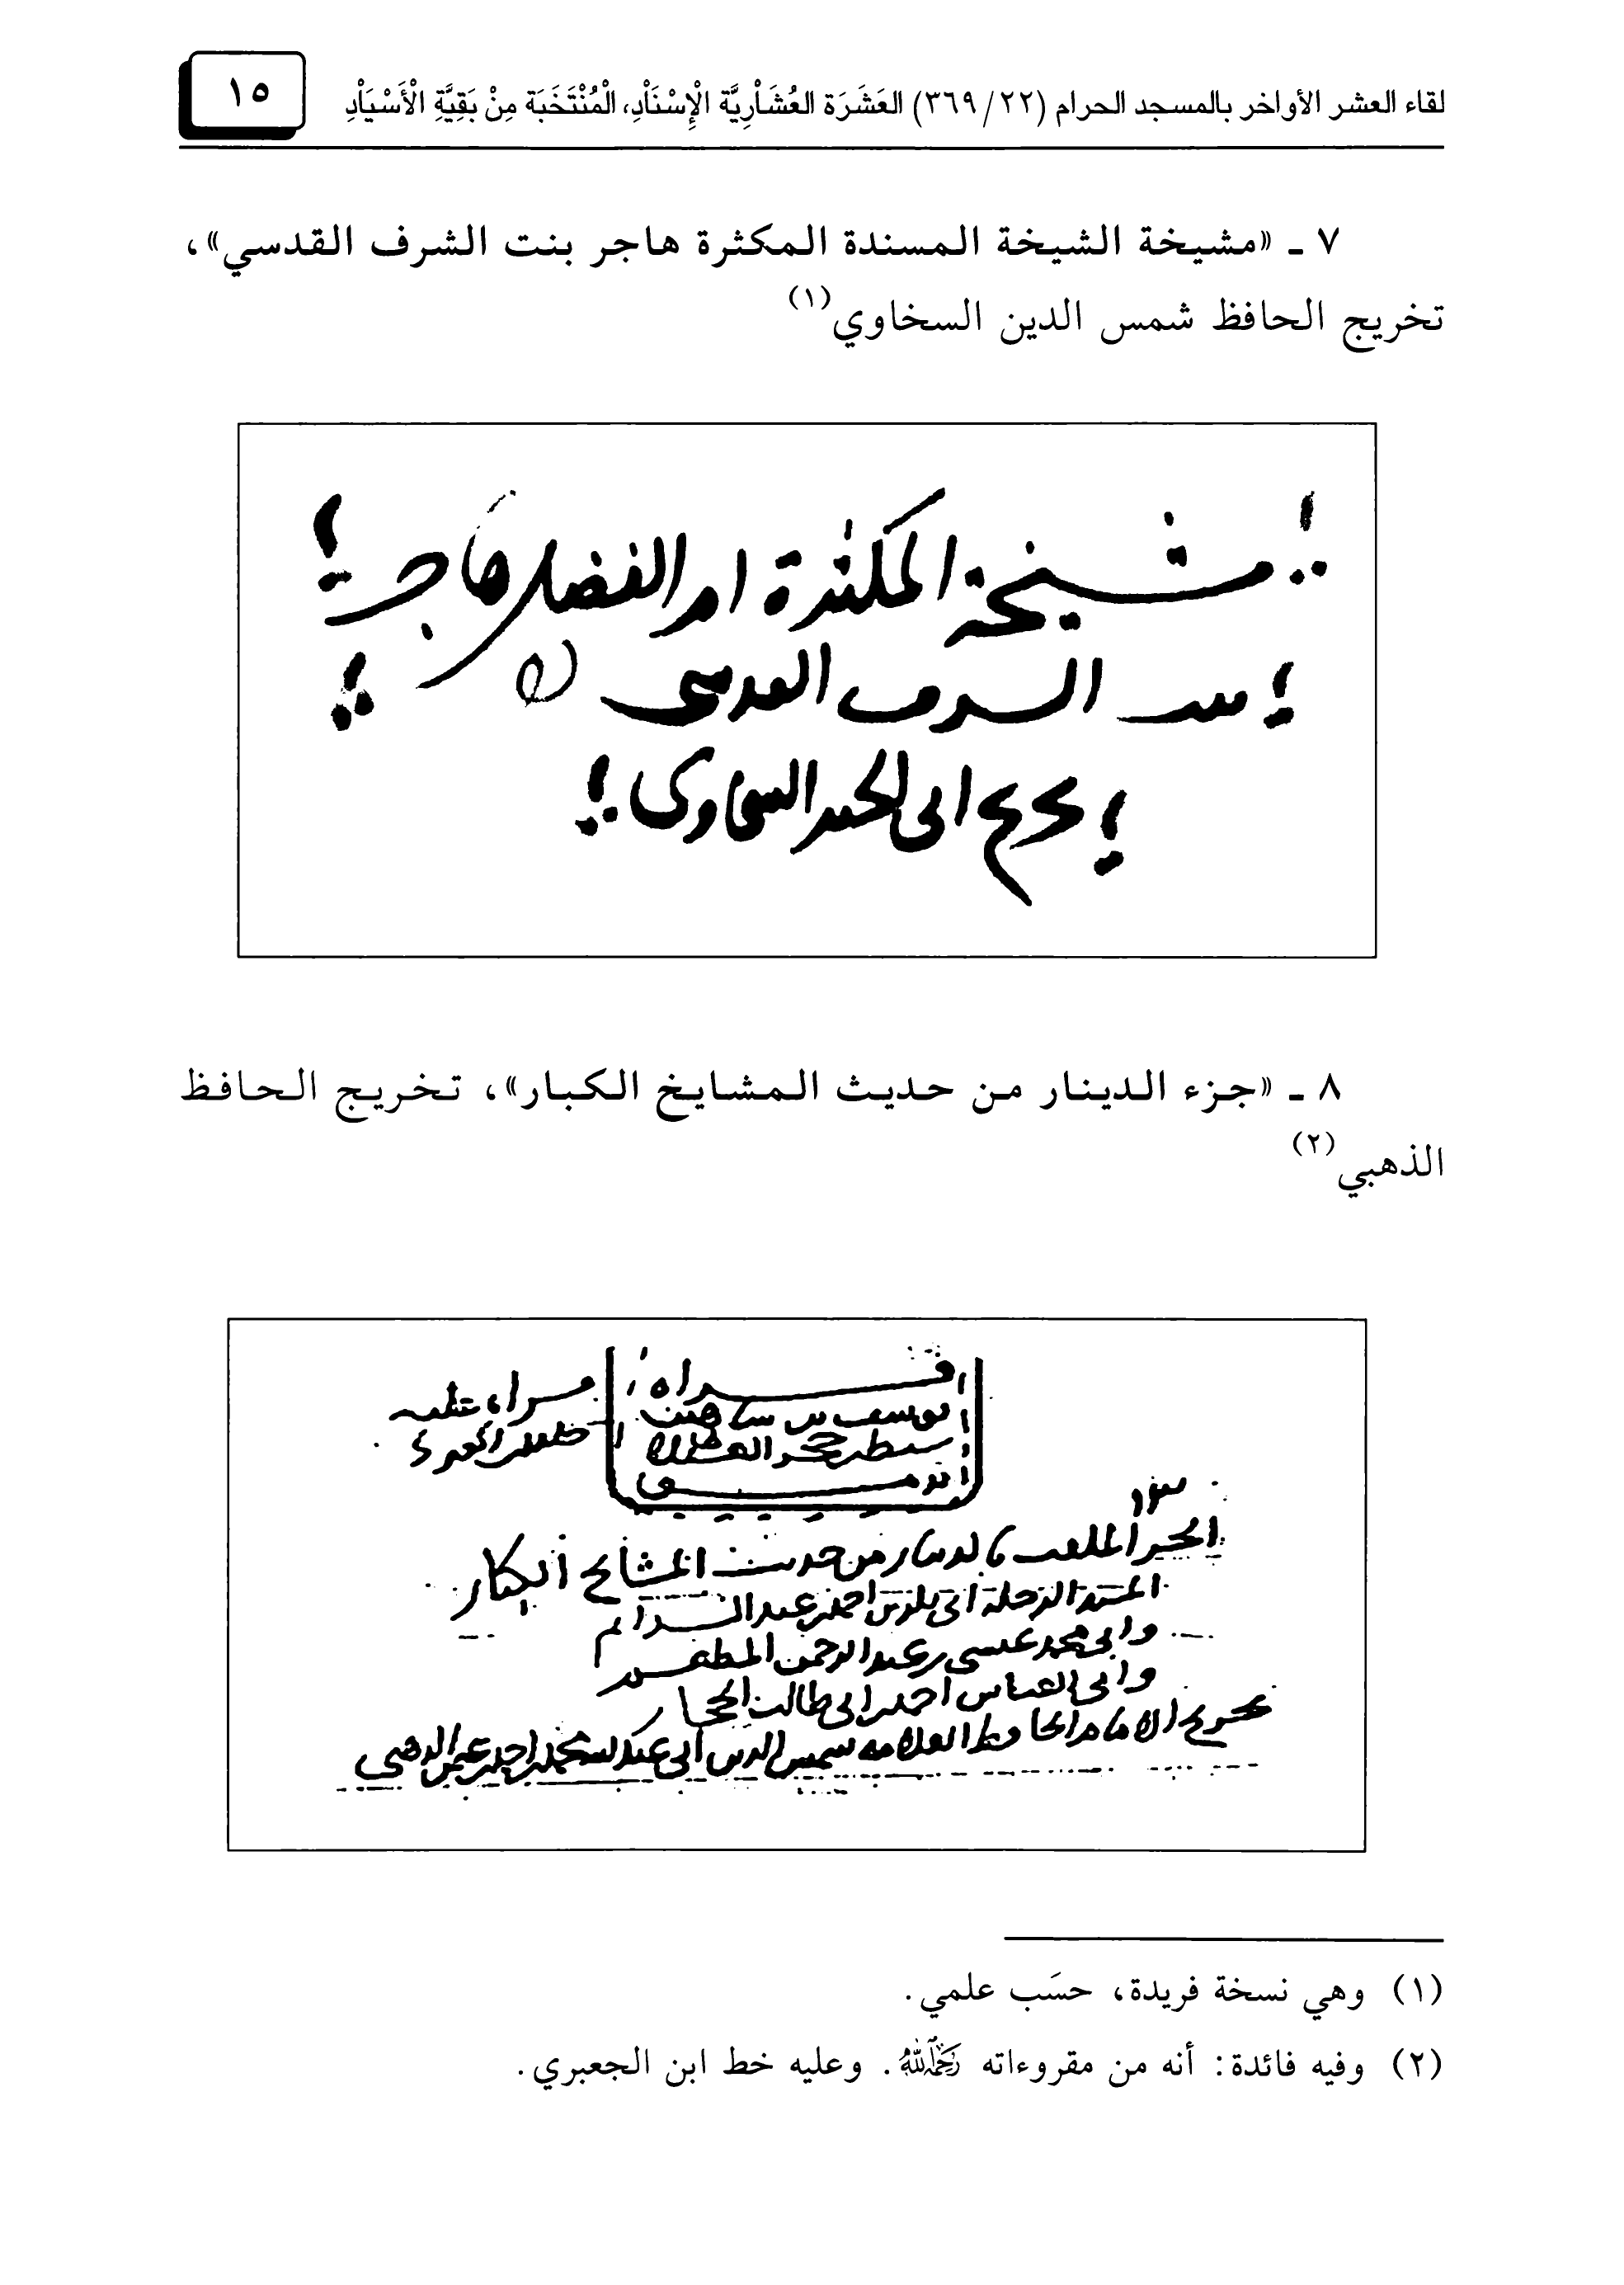 لقاء العشر الأواخر بالمسجد الحرام (٢٢/ ٣٦٩) العَشَرَة العُشَاْرِيَّة الْإِسْنَاْدِ، الْمُنْتَخَبَة مِنْ بَقِيَّةِ الْأَسْيَاْدِ
١٥
٧ ـ «مشيخة الشيخة المسندة المكثرة هاجر بنت الشرف القدسي»،
تخريج الحافظ شمس الدين السخاوي(١)
مشيخة المكثرة ام الفضل هاجر
ٮٮ السرف العدسى
ٮحرٮح ابى الخير السخاوى
٨ ـ «جزء الدينار من حديث المشايخ الكبار»، تخريج الحافظ
الذهبي(٢)
قراه
يوسف بن شاهين
سبط بن حجر العسقلانى
الجزء الملقب بالدينار من حديث المشايخ الكبار
المسند الرحلة ابى بكر بن احمد بن عبد الدايم
وابى محمد عيسى بن عبد الرحمن المطعم
وابى العباس احمد بن ابى طالب الحجار
تخريج الامام الحافظ العلامه شمس الدين ابى عبد الله محمد بن احمد بن عثمان الذهبى
(١) وهي نسخة فريدة، حسَب علمي.
(٢) وفيه فائدة: أنه من مقروءاته رَحِمَهُ اللهُ. وعليه خط ابن الجعبري.